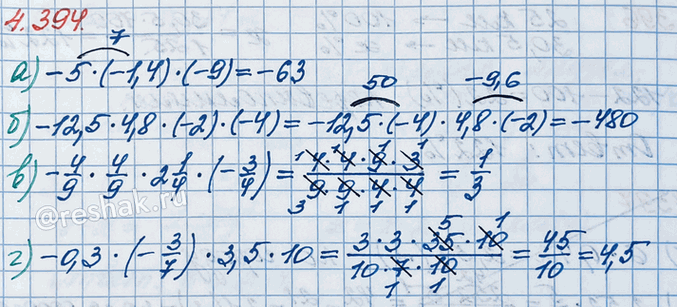 4.394.
7
а) −5·(−1,4)·(−9)=−63
50 −9,6
б) −12,5·4,8·(−2)·(−4)=−12,5·(−4)·4,8·(−2)=−480
в) −4/9·4/9·2 1/4·(−3/4)=4·4·9·3/9·9·4·4=1/3
г) −0,3·(−3/7)·3,5·10=3·3·35·10/10·7·10=45/10=4,5
@reshak.ru